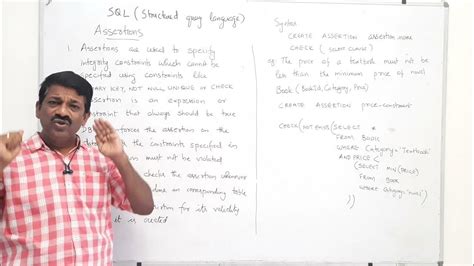 SQL (Structured query language)
Assertions
1. Assertions are used to specify
integrity constraints which cannot be
specified using constraints like
ARY KEY, NOT NULL UNIQUE or CHECK
ssertion is an expression or
onstraint that always should be true
DB enforces the assertion on the
the constraints specified in
tion must not be violated
checks the assertion whenever
done on corresponding table
for its validity
it is created
Syntax
CREATE ASSERTION assertion name
CHECK ( select clause)
eg. The price of a textbook must not be
less than the minimum price of novel
Book (BookId, Category, Price)
CREATE ASSERTION price-constraint
CHECK(NOT EXISTS(SELECT *
FROM BOOK
WHERE Category='Textbook'
AND PRICE <
(SELECT MIN(PRICE)
FROM BOOK
WHERE Category='novel')
))